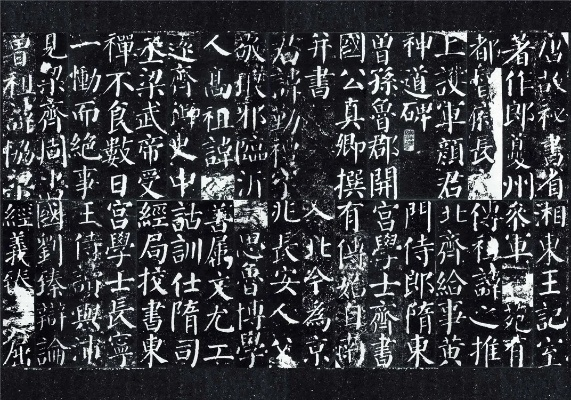 唐故秘書省
著作郎夔州
都督府長
上護軍顏君
神道碑
曾孫魯郡開
國公真卿撰
并書
君諱勤禮字
敬琅邪臨沂
人高祖諱
遠齊御史中
丞梁武帝受
禪不食數日
一慟而絕事
見梁齊周書
曾祖諱協梁
湘東王記室
參軍文苑有
傳祖諱之推
北齊給事黃
門侍郎隋東
宮學士齊書
有傳始自南
入北今為京
兆長安人父
思魯博學
善屬文尤工
詁訓仕隋司
經局校書東
宮學士長寧
王侍讀與沛
國劉臻辯論
經義臻屈